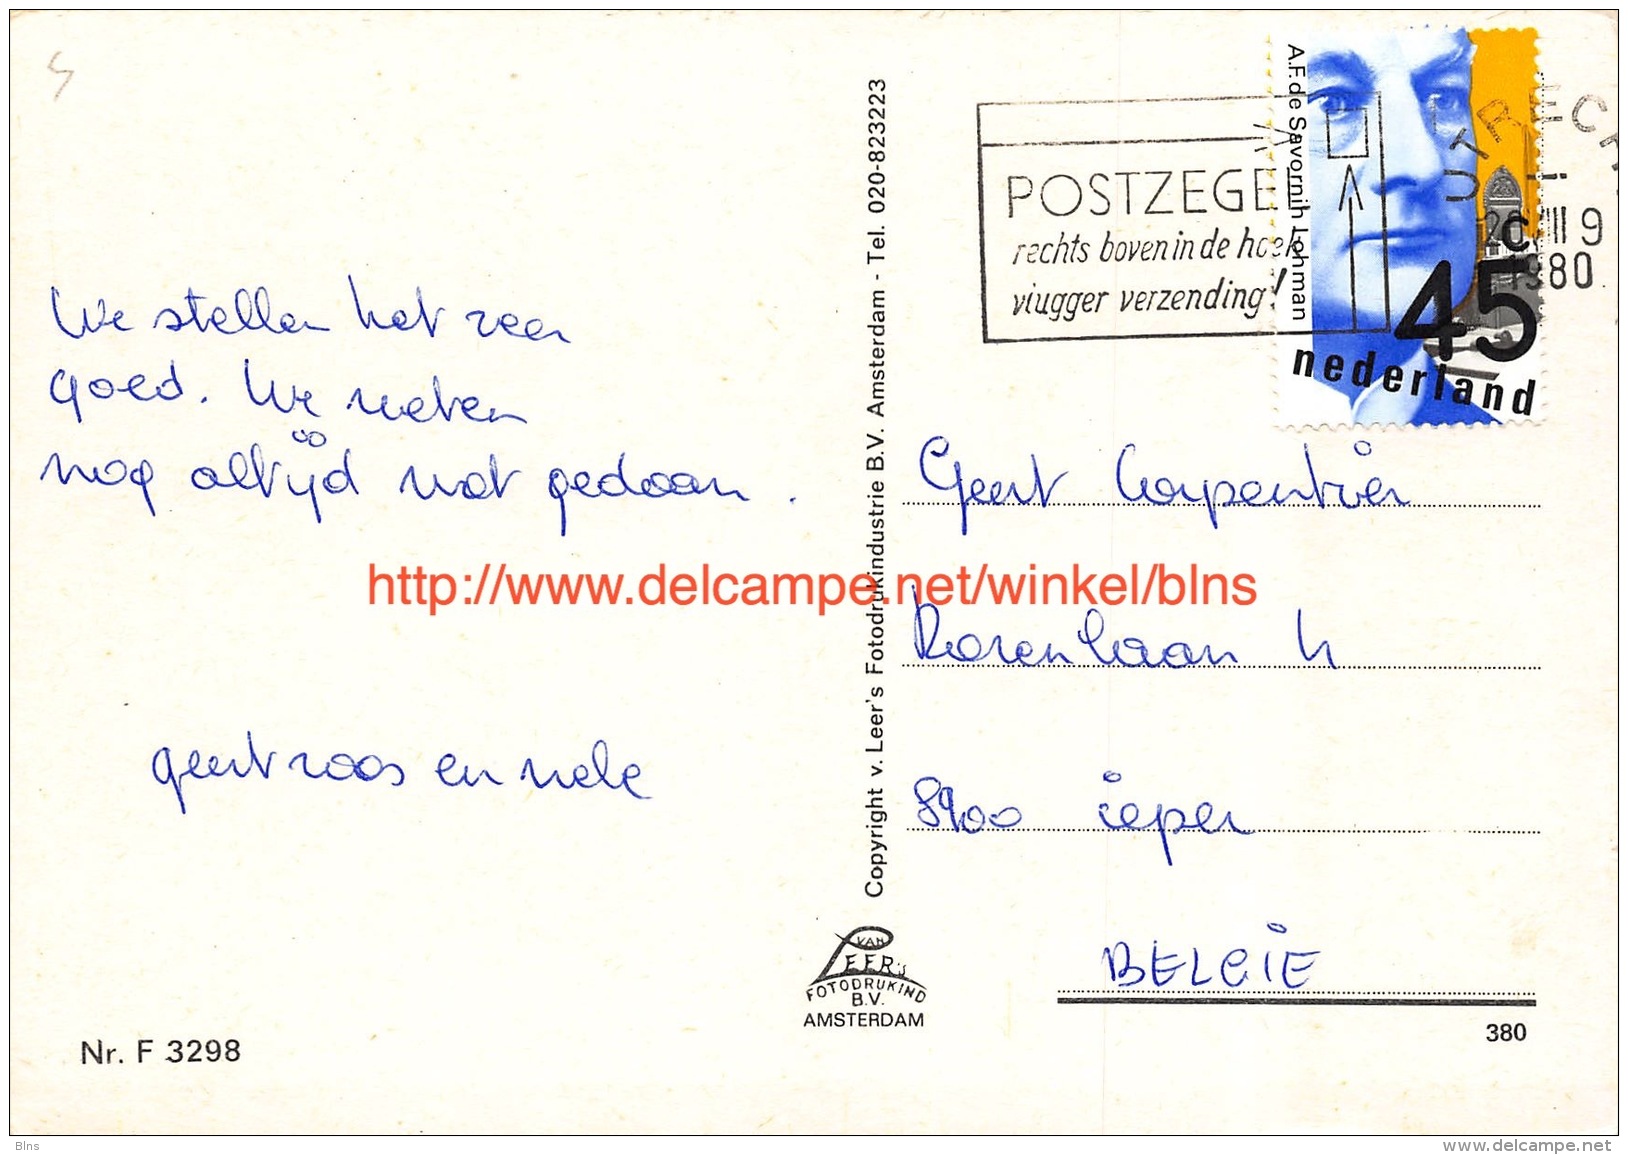 We stellen het zeer
goed. We weten
nog altijd wat gedaan.
geert roos en nele
Nr. F 3298
Copyright v. Leer's Fotodrukindustrie B.V. Amsterdam - Tel. 020-823223
VAN
LEER'S
FOTODRUKIND
B.V.
AMSTERDAM
POSTZEGEL
rechts boven in de hoek
vlugger verzending!
A.F. de Savornin Lohman
UTRECHT
20 VIII 9
1980
c
45
nederland
Geert Carpentier
Rozenlaan 4
8900 ieper
BELGIE
380
http://www.delcampe.net/winkel/blns
Blns
www.delcampe.net